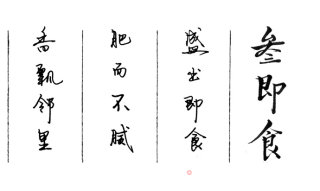 叁即食
盛出即食
肥而不腻
香飘邻里